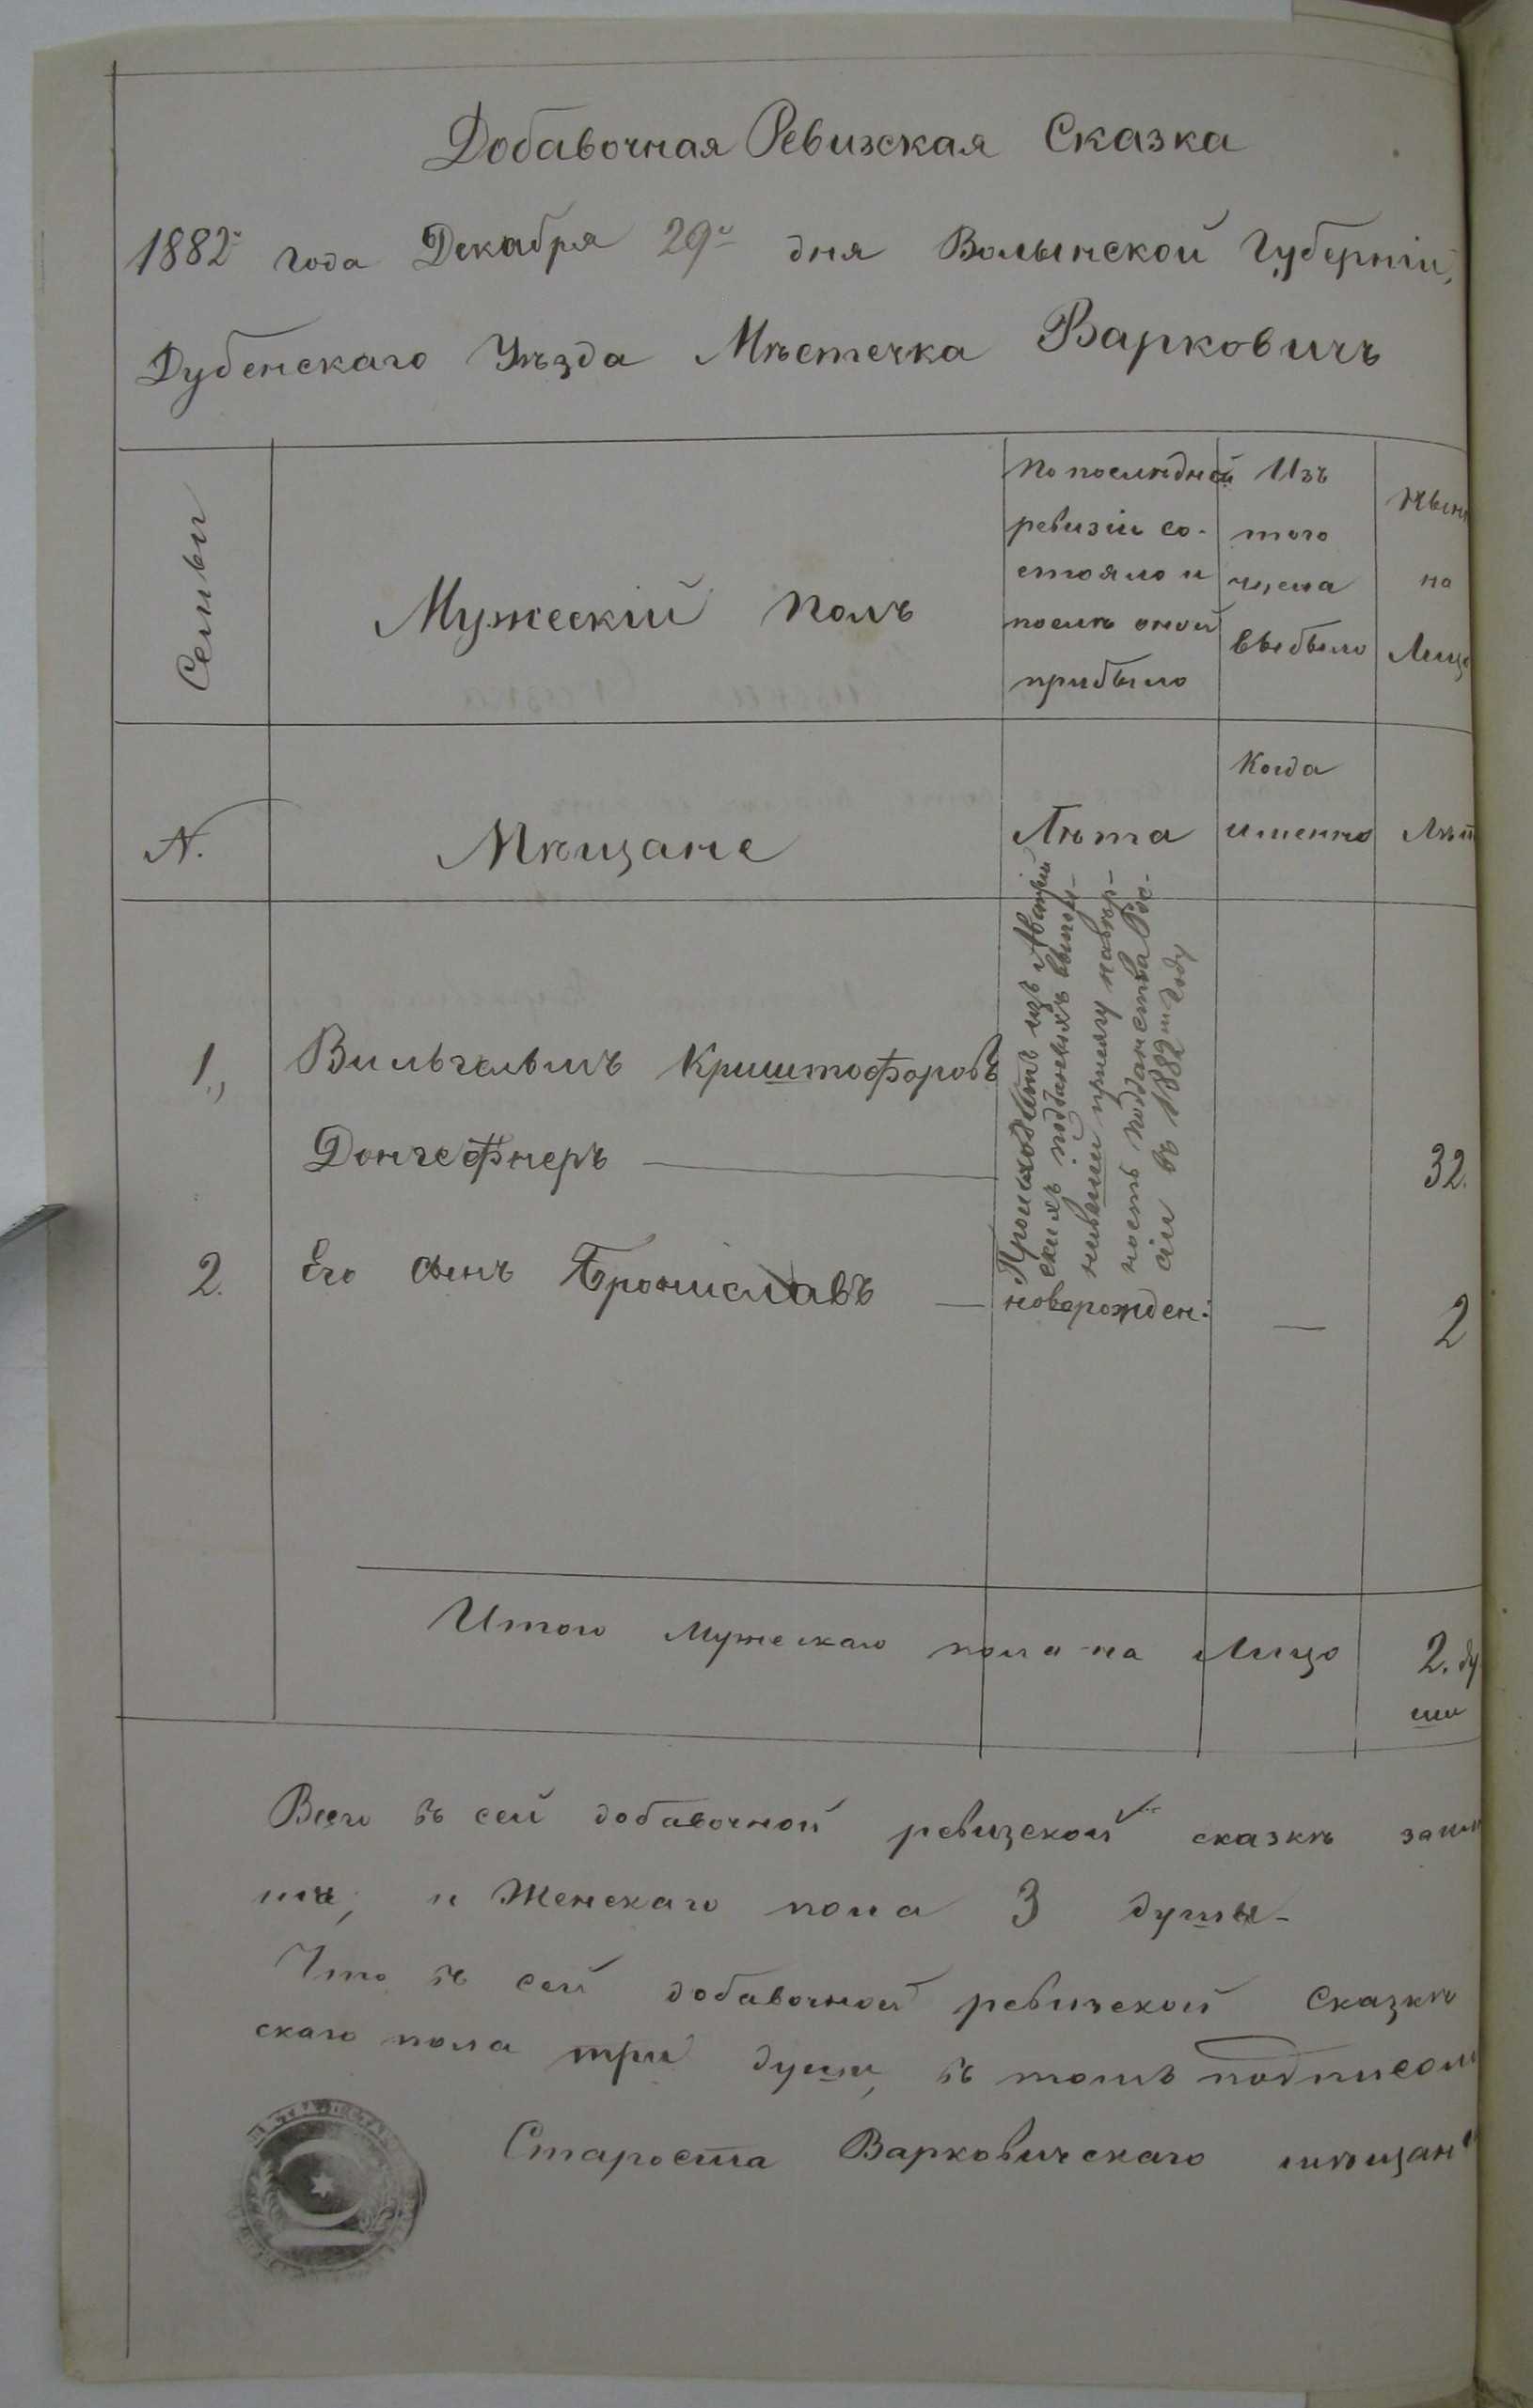 Добавочная Ревизская Сказка
1882го года Декабря 29го дня Волынской Губерніи,
Дубенскаго Уѣзда Мѣстечка Варковичъ
Семьи
Мужескій полъ
По послѣдней
ревизіи со-
стояло и
послѣ оной
прибыло
Изъ
того
числа
выбыло
Нынѣ
на
Лицо
N.
Мѣщане
Лѣта
Когда
именно
Лѣт
1.,
Вильгельмъ Криштофоровъ
Донгефнеръ
32.
Происходитъ изъ Австрій
скихъ подданныхъ выпол-
нившій присягу на вѣр-
ность подданства Рос-
сіи въ 1882м году
2.
Его сынъ Брониславъ
новорожден:
2
Итого мужескаго пола на Лицо
2. ду
ши
Всего въ сей добавочной ревизской сказкѣ запи
и Женскаго пола 3 души-
Что въ сей добавочной ревизской Сказкѣ
скаго пола три души, въ томъ подписом
Староста Варковичскаго мѣщан